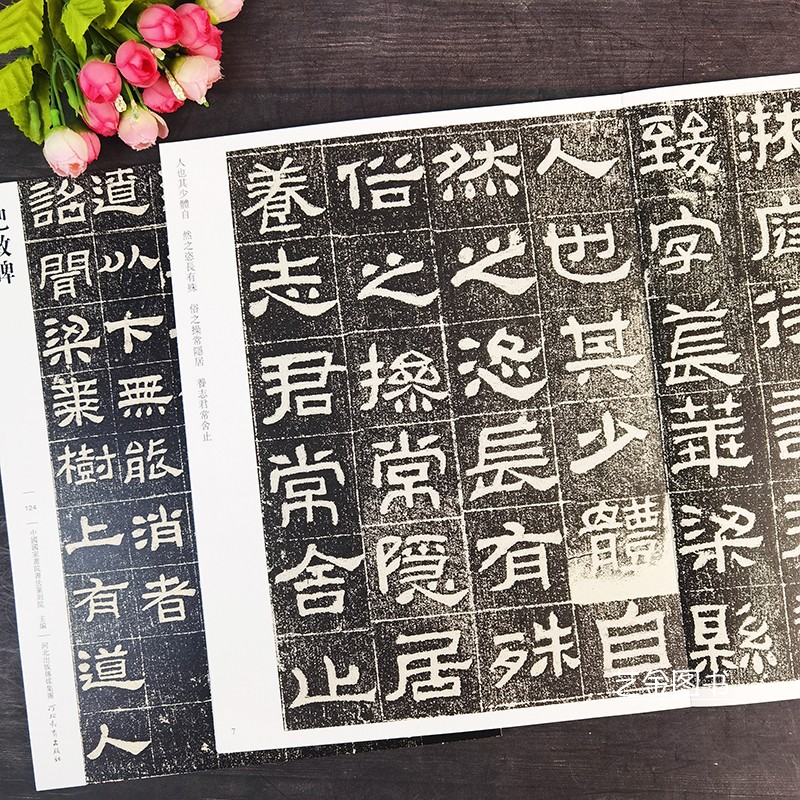 掖庭待詔
致字萇華梁縣
人也其少體自
然之恣長有殊
俗之操常隱居
養志君常舍止
人也其少體自　然之恣長有殊　俗之操常隱居　養志君常舍止
7
遣以下無能消者
詔聞梁棗樹上有道人
肥致碑
124
中國國家書院書法篆刻院　主編
河北出版傳媒集團
河北教育出版社
艺金图书